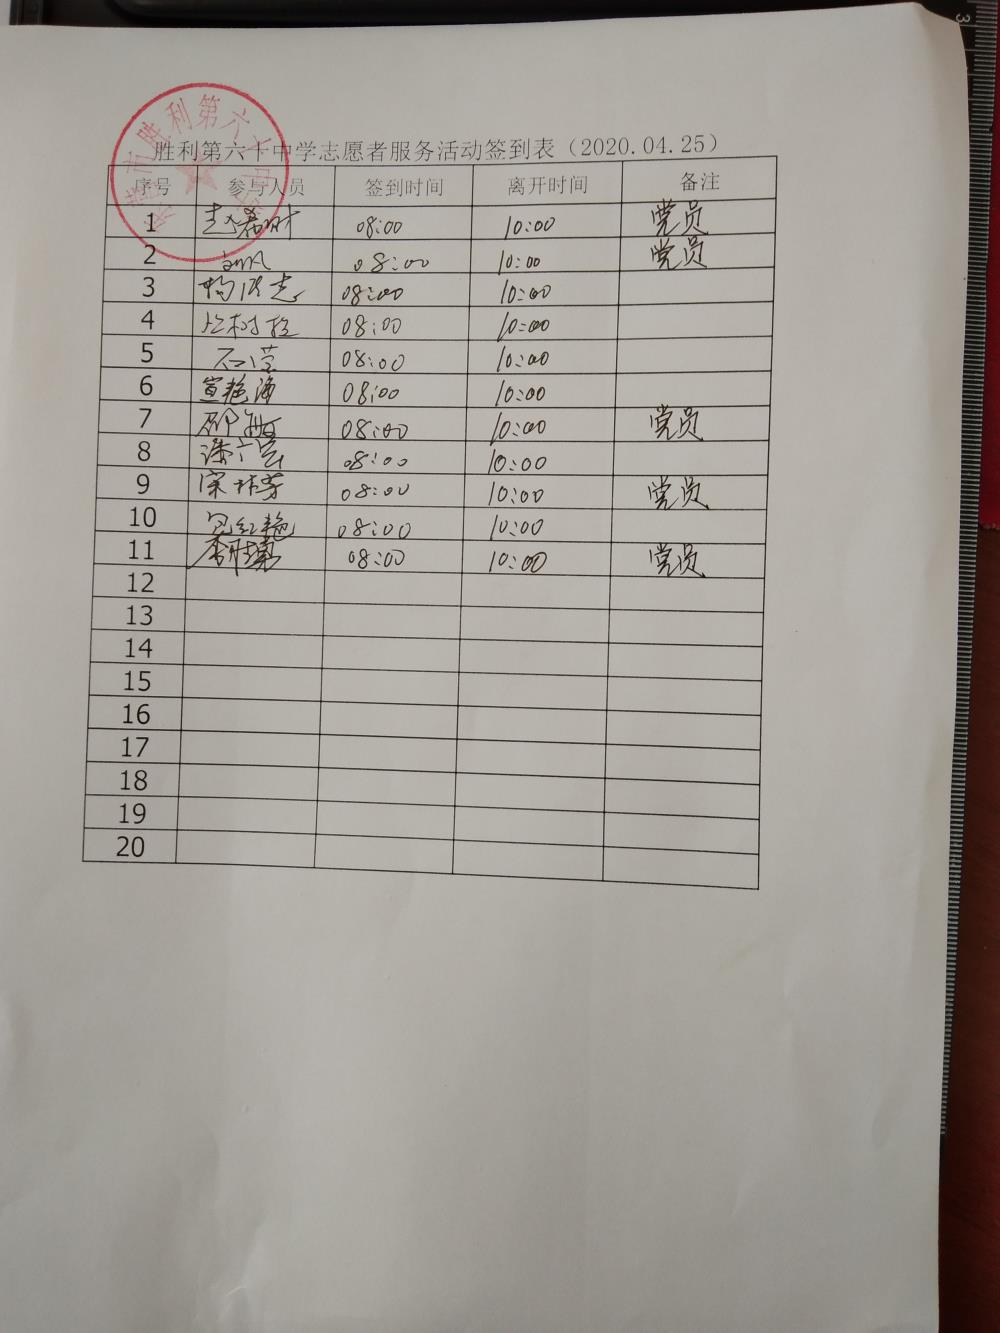 胜利第六十中学志愿者服务活动签到表（2020.04.25）
序号 参与人员 签到时间 离开时间 备注
1 08:00 10:00 党员
2 08:00 10:00 党员
3 08:00 10:00
4 08:00 10:00
5 石莹 08:00 10:00
6 宣艳海 08:00 10:00
7 08:00 10:00 党员
8 08:00 10:00
9 08:00 10:00 党员
10 08:00 10:00
11 08:00 10:00 党员
12
13
14
15
16
17
18
19
20